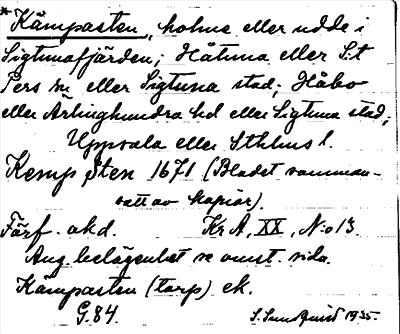 *Kämpasten, holme eller udde i
Sigtunafjärden; Håtuna eller S:t
Pers sn eller Sigtuna stad; Håbo
eller Ärlinghundra hd eller Sigtuna stad;
Uppsala eller Sthlms l.
Kemp Sten 1671 (Bladet samman-
satt av kopior).
Förf. akd. KrA, XX, No 13.
Ang. belägenhet se omst. sida.
Kämpasten (torp) ek.
G.84. S. Sundquist 1935